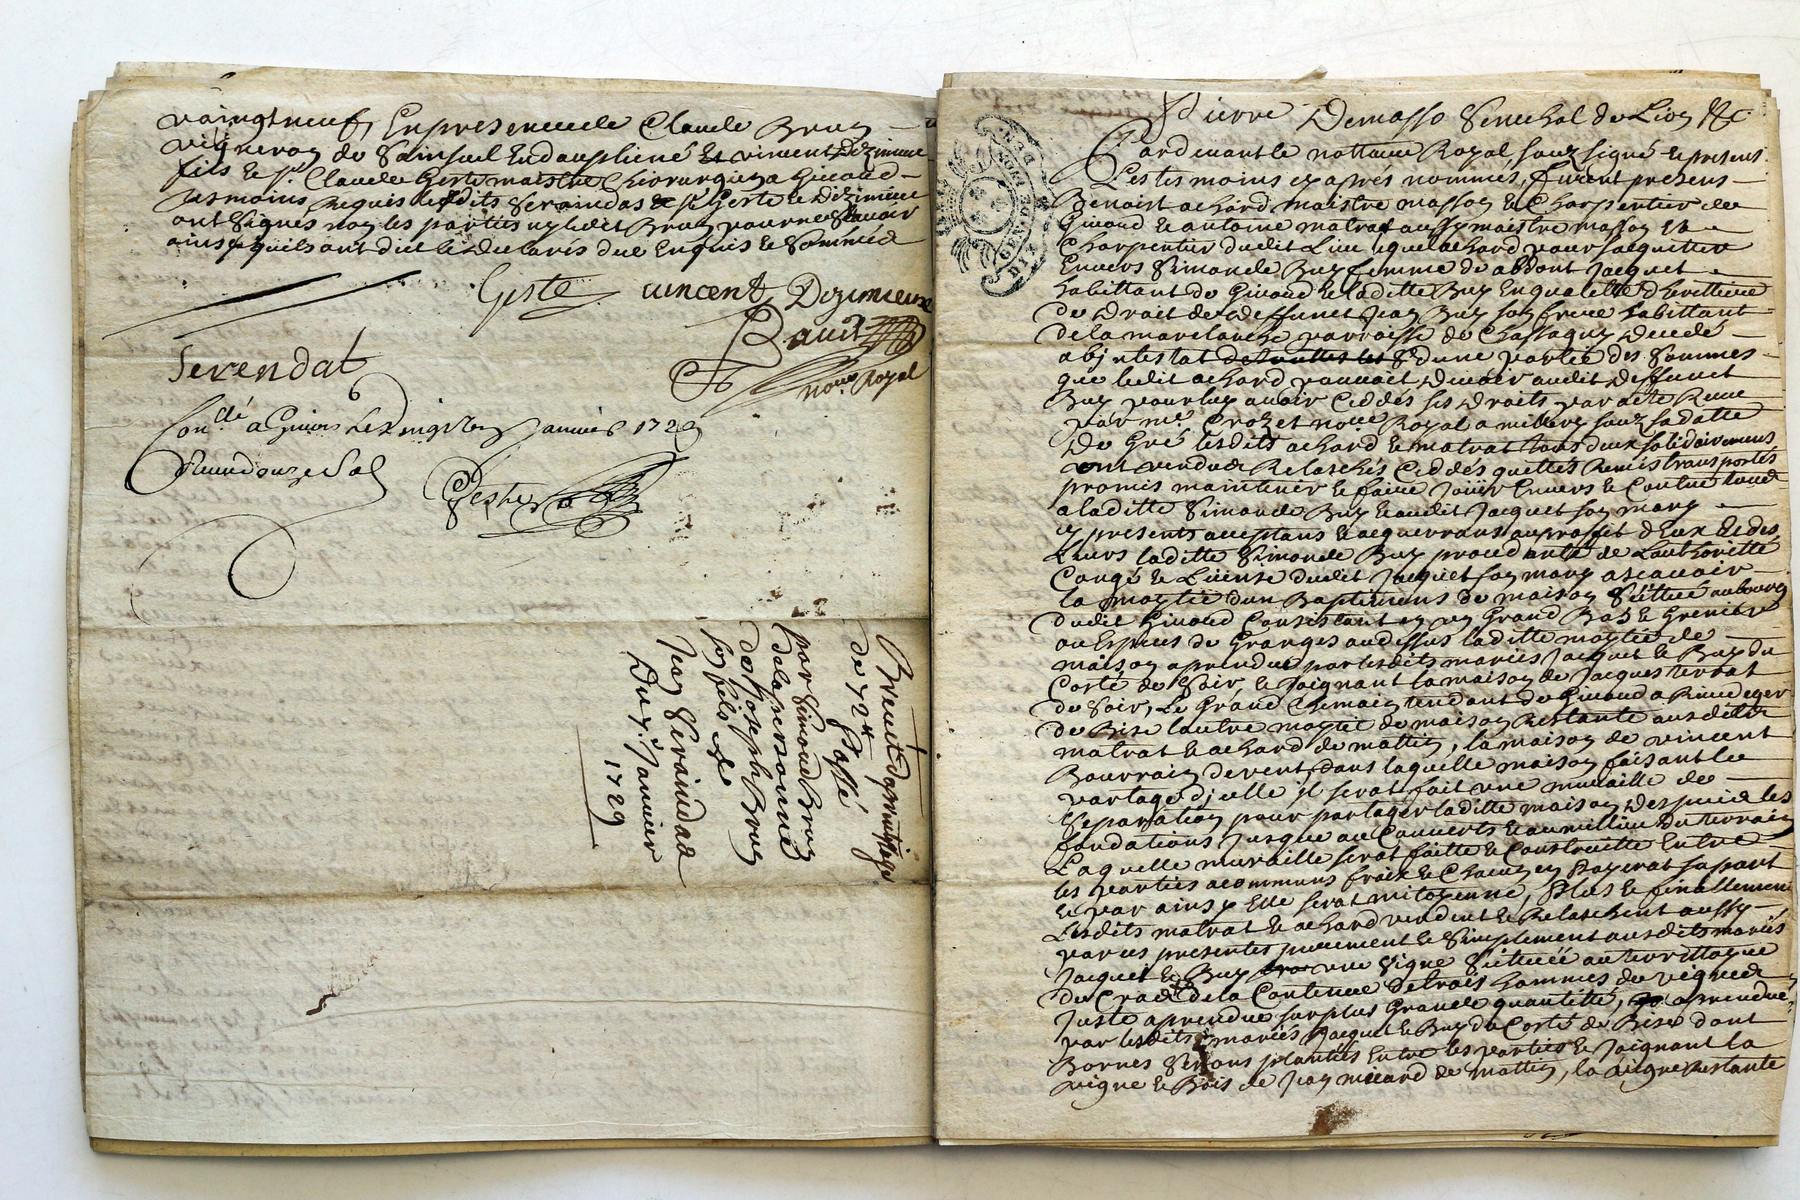 vaingt neuf, En presence de Claude Brun
vigneron de Saint en dauphiné & vincent Dezimieux
fils de Sr Claude Geste maistre Chirurgien a Givord
tesmoins requis lesdits Seraindas & Sr Geste & Dizimieux
ont Signés non les parties ny ledit Brun pour ne Scavoir
ainsy quils ont dit & declarés de ce Enquis & Sommés
Geste vincent Dezimieux
Bauit
Serendat
nore. Royal
Conllé a Givors Le vingt janvier 1729
Receu douze Sol
Geste
Brevet dapprentissage
de 72 ll
Passé
par Simond Brun
de la personne
de joseph Brun
son fils &
Jean Seraindas
Du janvier
1729
Pierre Demasso Senechal de Lion &c
Pardevant le nottaire Royal, sous signé & presens
Les tesmoins cy apres nommés, furent presens
Benoist achard maistre masson & Charpentier de
Givord & antoine matrat aussy maistre masson &
Charpentier dudit Lieu lequel achard pour sacquitter
Envers Simonde Buy femme de abdont Jacquet
habittant de Givord & ladite Buy En qualitté dherittiere
de Droit de deffunct jean Buy son frere habittant
de la paroisse de Chassagny decedé
abintestat dune partie des Sommes
que ledit achard pouvoit devoir audit deffunct
Buy pour luy avoir ceddés ses Droits par acte Receu
par me. Crozet nore Royal a millery sous sa datte
De Gré lesdits achard & matrat tous deux solidairement
ont vendus Relaschés Ceddés quittés Remis transportés
promis maintenir & faire Jouir Envers & Contre tous
a laditte Simonde Buy & audit Jacquet son mary
cy presents acceptans & acquerrans au proffit dEux & des
Leurs laditte Simonde Buy procedante de Lauthoritté
Congé & License dudit Jacquet son mary ascavoir
la moytié dun Baptiment de maison Sittué au bourg
dudit Givord Consistant en un Grand Bas & Grenier
ou Especes de Granges au dessus laditte moytié de
maison a prendre par lesdits mariés Jacquet & Buy du
Costé de Soir, & Joignant la maison de Jacques
de Soir, Le Grand Chemin tendant de Givord a Rivedegier
de Bise lautre moytié de maison Restante ausdits
matrat & achard de mattin, la maison de vincent
Bourrain de vent, dans laquelle maison faisant le
partage dicelle il serat fait une muraille de
Separation pour partager laditte maison despuis les
fondations jusque au Couverts & au millieu du terrain
Laquelle muraille serat faitte & Construitte Entre
les parties a communs fraix & Chacun en payerat sa part
& par ainsy Elle serat mitoyenne, Plus & finallement
Lesdits matrat & achard vendent & Relaschent aussy
par ces presentes purement & Simplement ausdits mariés
Jacquet & Buy une vigne Sittuée au territtoire
du de la Contenue de trois hommes de vigne
juste a prendre sur plus Grande quantitté, a prendre
par lesdits mariés Jacquet & Buy du Costé de Bise dont
Bornes Serons plantées Entre les parties & Joignant la
vigne & Bois de jean micard de mattin, la vigne restante